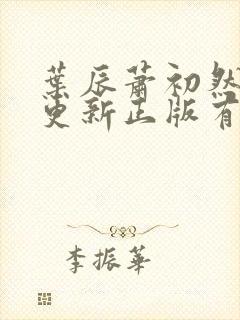 葉辰蕭初然
更新正版有
李振華